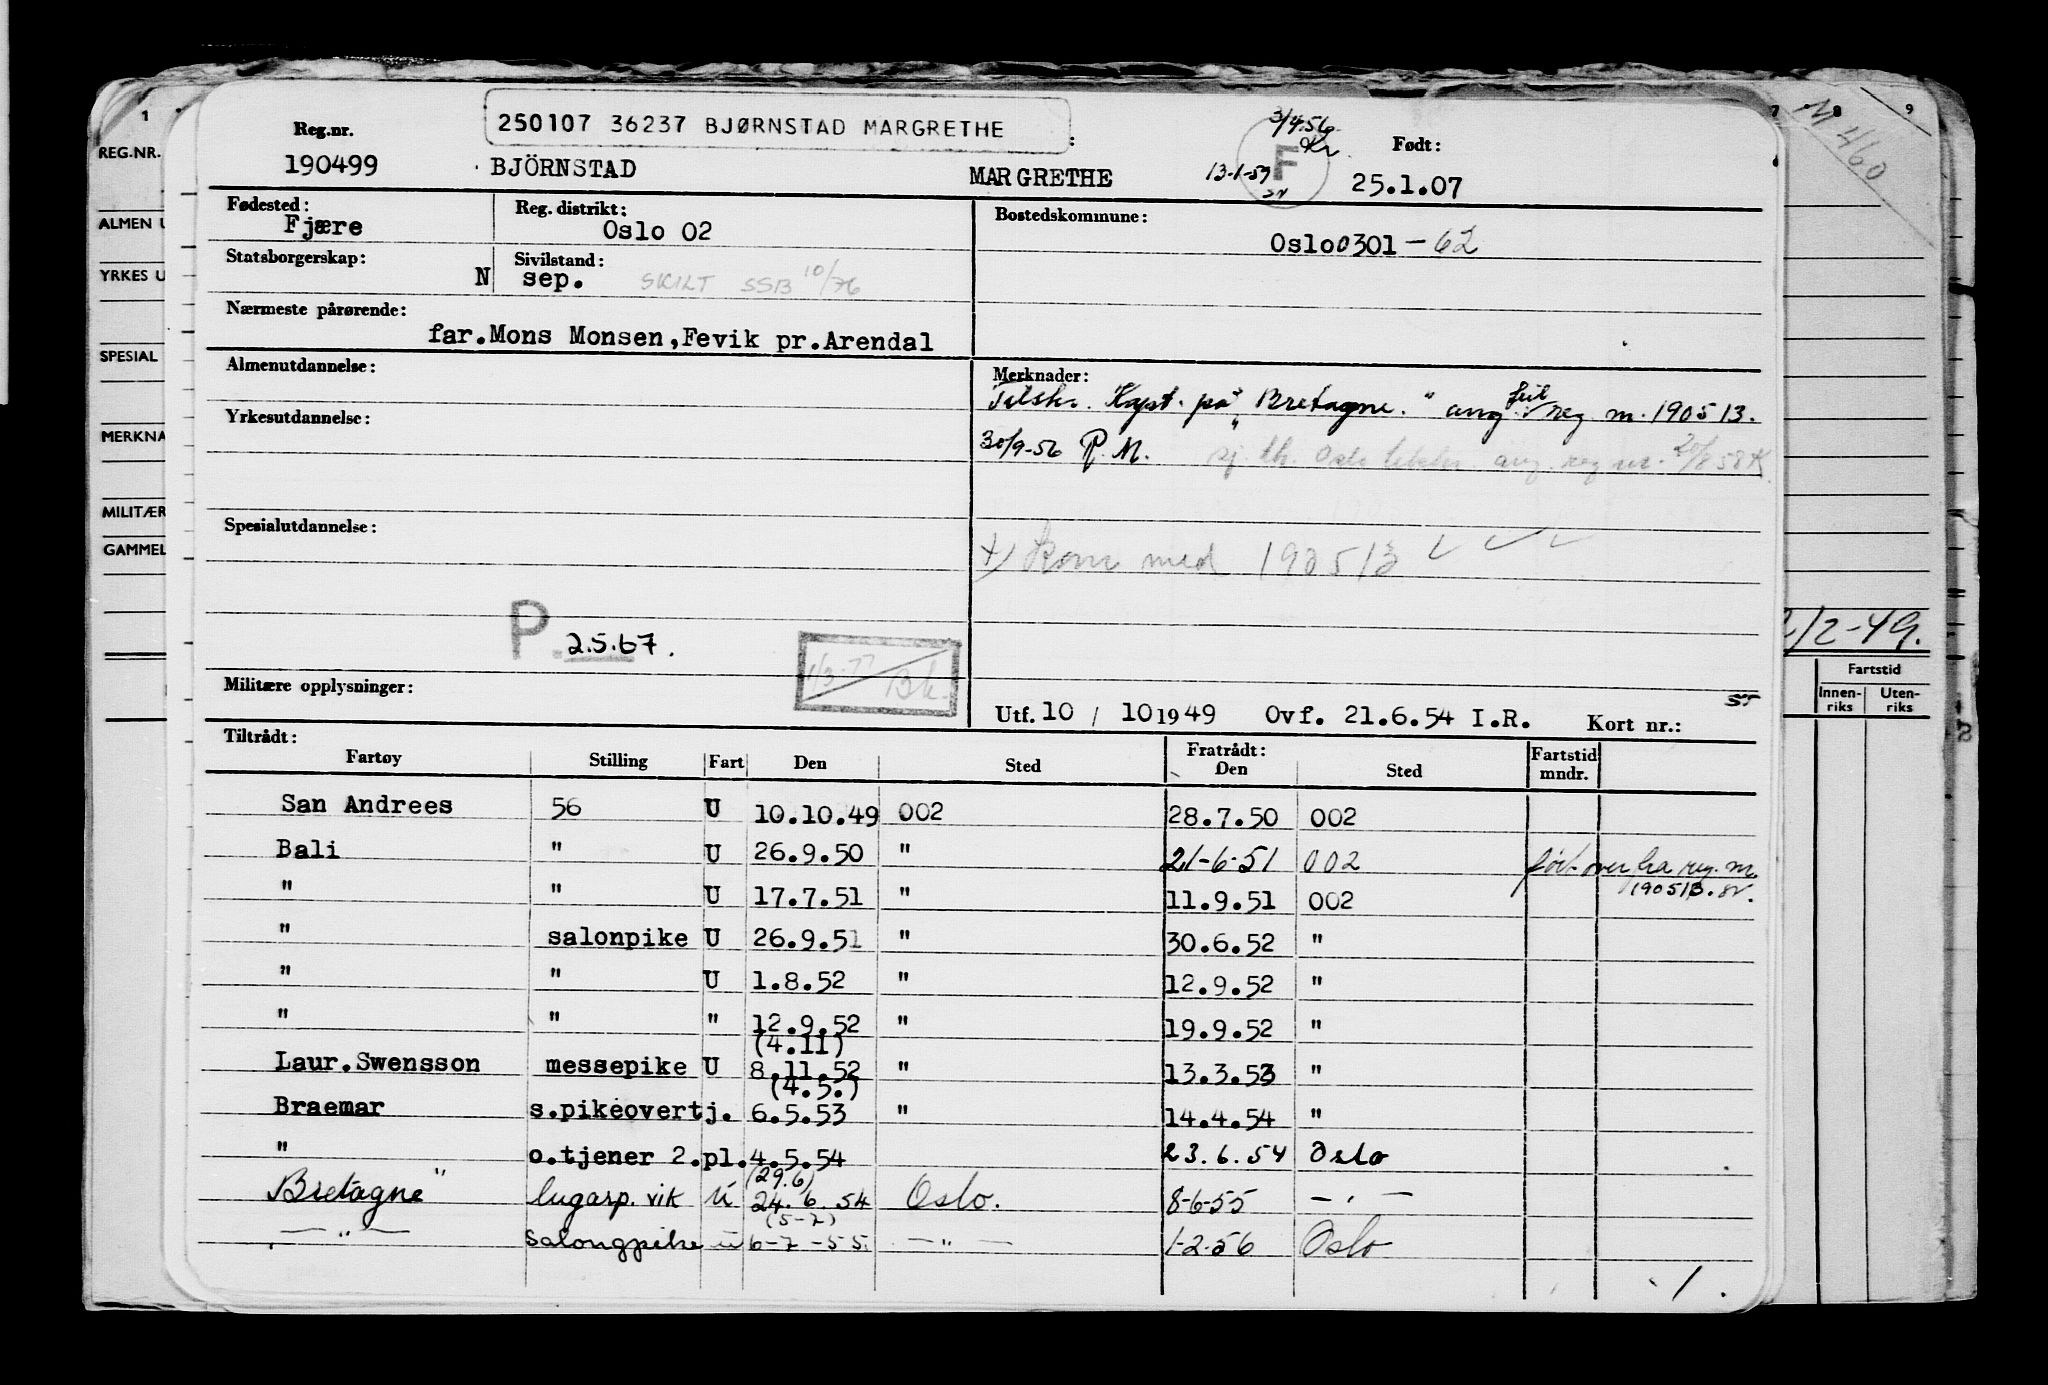 1 7 8 9
M 460
250107 36237 BJØRNSTAD MARGRETHE
Reg.nr. : 3/4.56. Kr. F Født:
190499 BJÖRNSTAD MARGRETHE 13-1-59 25.1.07
REG.NR.
Fødested: Reg. distrikt: Bostedskommune:
Fjære Oslo 02 Oslo0301 - 62
ALMEN U
Statsborgerskap: N Sivilstand:
sep. SKILT SSB 10/76
YRKES U
Nærmeste pårørende:
far.Mons Monsen,Fevik pr.Arendal
SPESIAL
Almenutdannelse: Merknader:
Tilskr. Kapt. på "Bretagne." ang. feil reg. nr. 190513.
Yrkesutdannelse:
30/9-56 R.M. ang. reg nr. 20/8 58 K
MERKNA
MILITÆR
Spesialutdannelse:
GAMMEL
+) Kom med 190513
P. 2.5.67.
1/3-77 Bk.
2/2-49.
Militære opplysninger:
Utf. 10 / 10 1949 Ovf. 21.6.54 I.R. Kort nr.:
Fartstid
Innen-riks Uten-riks
Tiltrådt: Fratrådt:
Fartøy Stilling Fart Den Sted Den Sted Fartstid mndr.
San Andrees 56 U 10.10.49 002 28.7.50 002
Bali " U 26.9.50 " 21-6-51 002 ført over fra reg. nr.
190513.
" " U 17.7.51 " 11.9.51 002
" salonpike U 26.9.51 " 30.6.52 "
" " U 1.8.52 " 12.9.52 "
" " " 12.9.52 " 19.9.52 "
(4.11)
Laur.Swensson messepike U 8.11.52 " 13.3.53 "
(4.5.)
Braemar s.pikeovertj. 6.5.53 " 14.4.54 "
" o.tjener 2.pl. 4.5.54 23.6.54 Oslo
(29.6)
Bretagne" lugarp. vik U 24.6.54 Oslo. 8-6-55 — " —
(5-7)
— " — Salongpike u 6-7-55. — " — 1-2-56 Oslo
1.